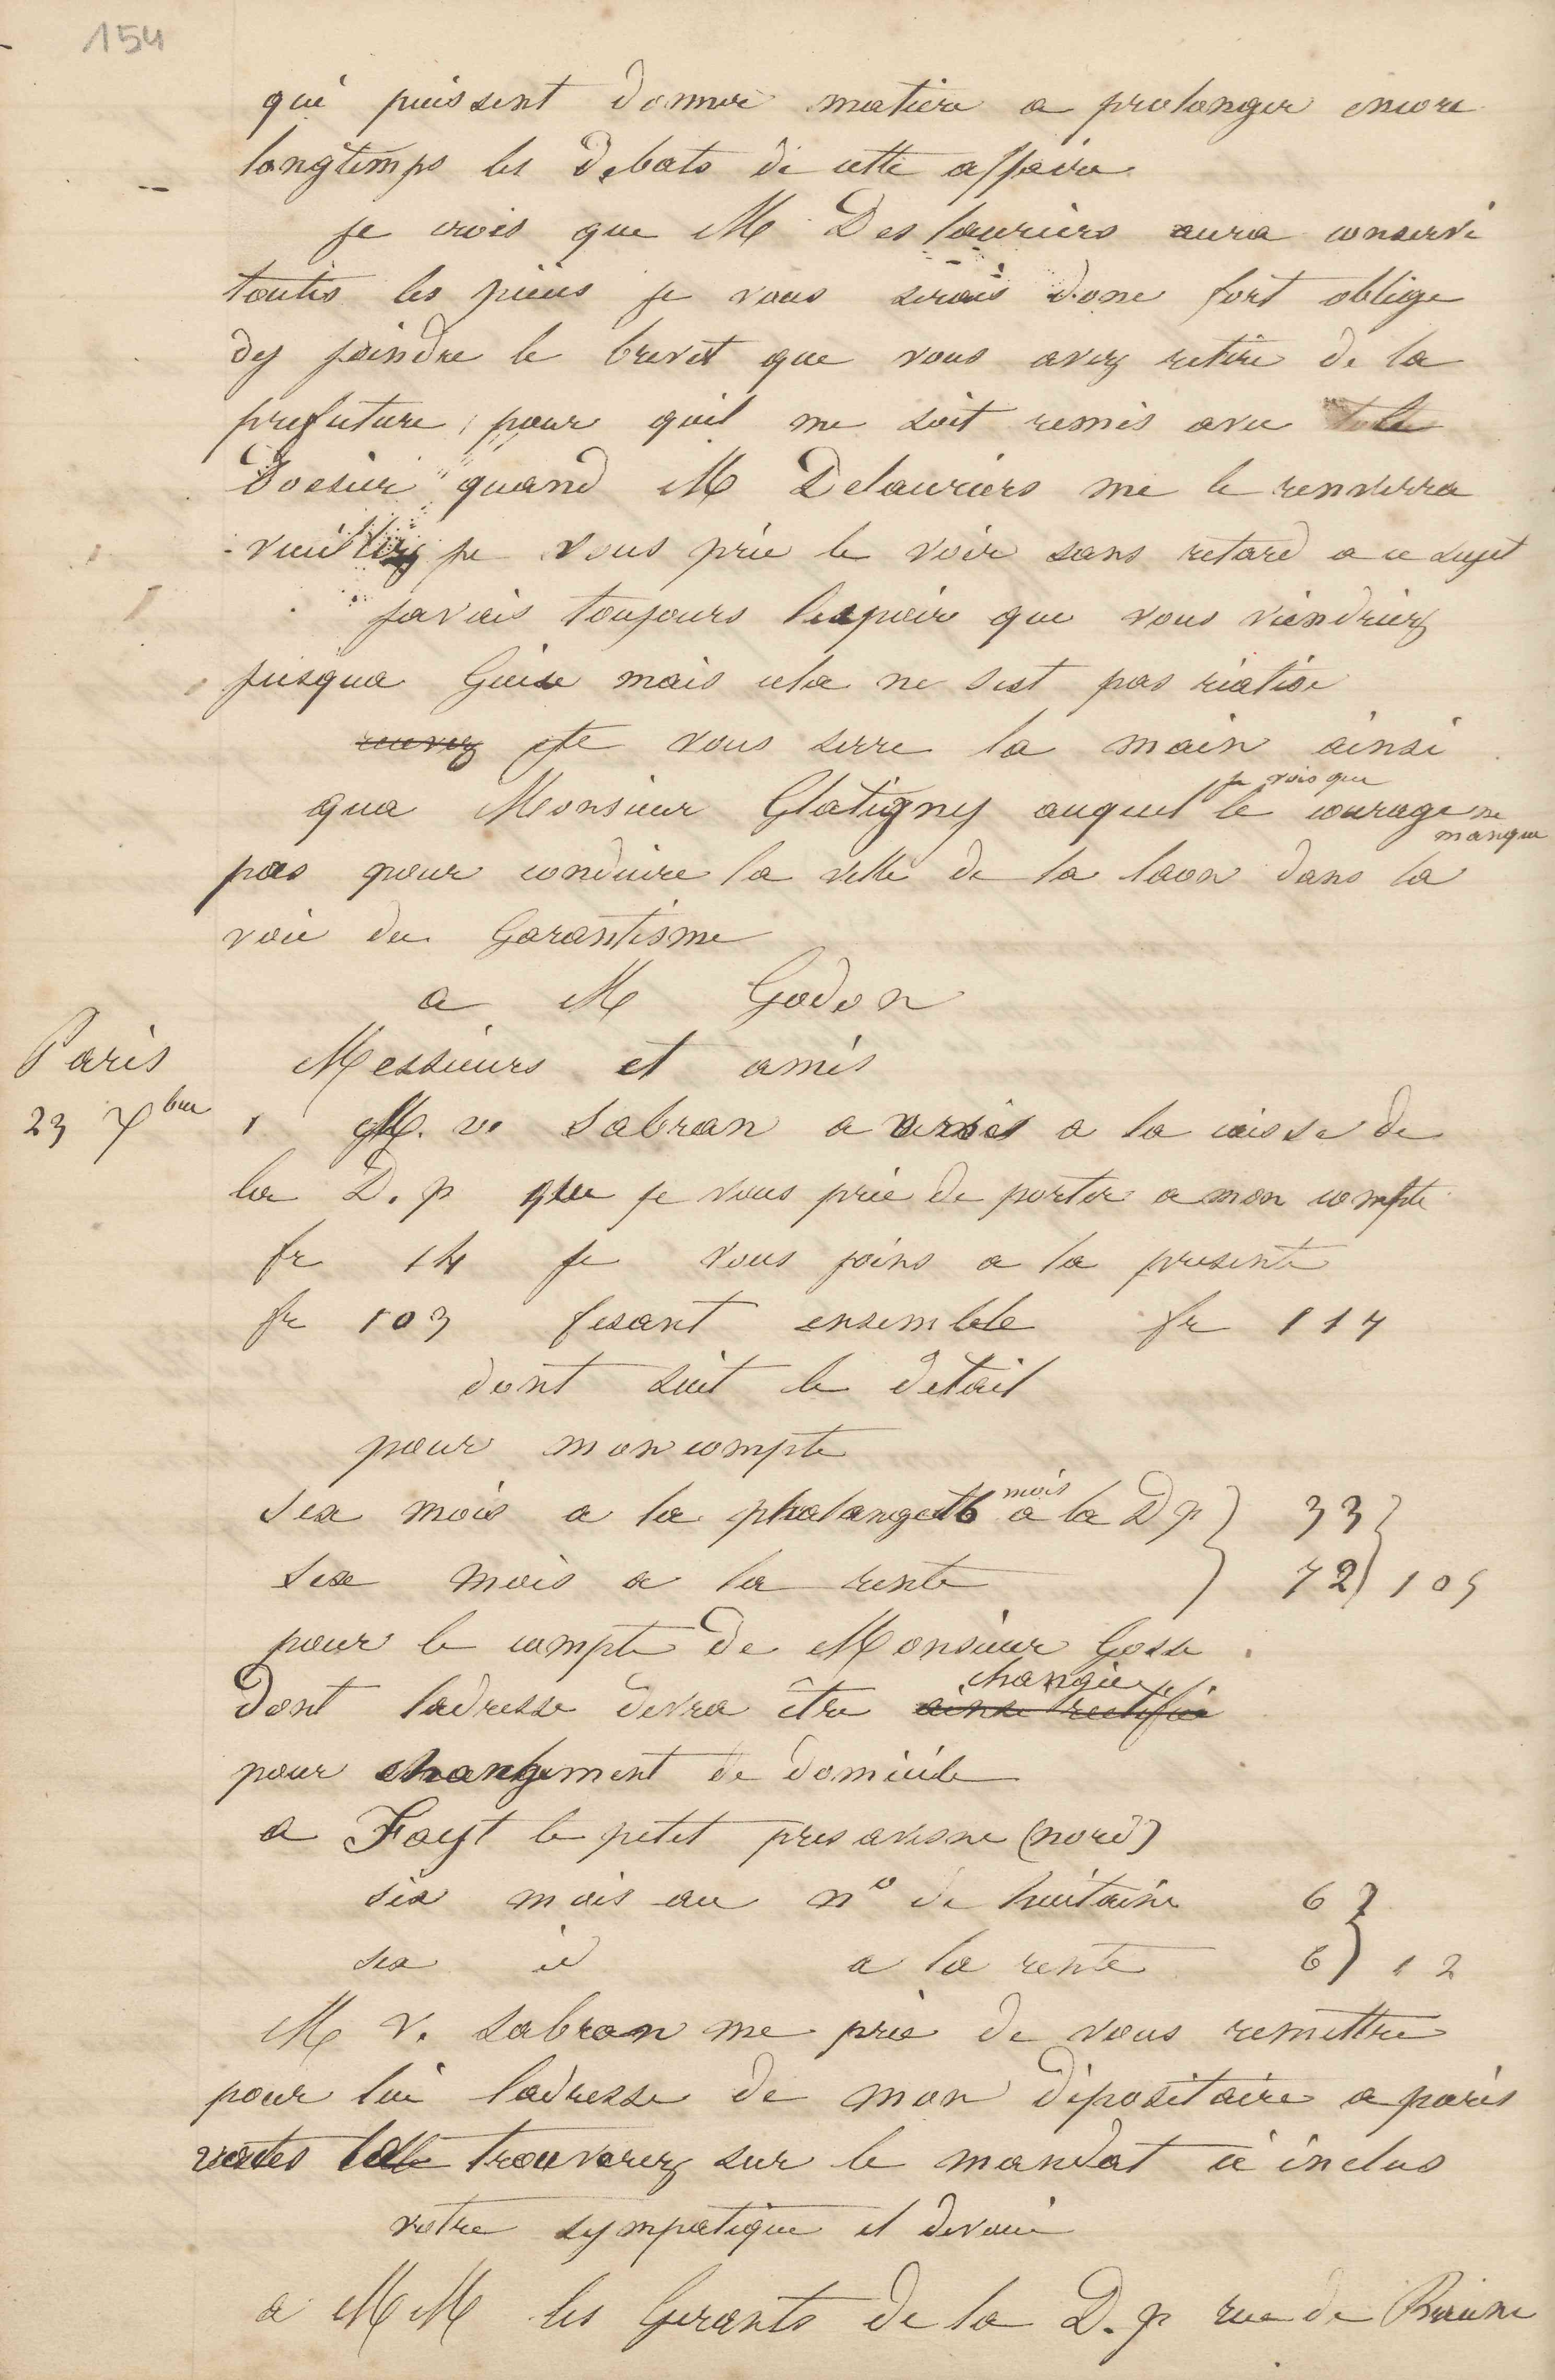 154
qui puissent donner matiere a prolonger encore
longtemps les Debats de cette affaire
je crois que M Deslauriers aura conservé
toutes les pieces je vous serais donc fort oblige
dy joindre le brevet que vous avez retire de la
prefecture pour quil me soit remis avec le
Dossier quand M Delauriers me le renverra
veuillez je vous prie le voir sans retard a ce sujet
javais toujours lespoir que vous viendriez
jusqua Guise mais cela ne sest pas réalise
recevez Je vous serre la main ainsi
qua Monsieur Glatigny auquel je vois que le courage ne manque
pas pour conduire la ville de la laon dans la
voie du Garantisme
a M Godon
Paris
23 7bre
Messieurs et amis
M. v. Sabran a versé a la caisse de
la D. p que je vous prie de porter a mon compte
fr 14 je vous joins a la presente
fr 103 fesant ensemble fr 117
dont suit le detail
pour mon compte
six mois a la phalange 6 mois a la D p } 33 }
six mois a la rente } 72 } 105
pour le compte de Monsieur Gosse
Dont ladresse devra être ainsi rectifiée changée
pour changement de domicile
a Fayt le petit pres avesne (nord)
six mois au no de huitaine 6 }
six id a la rente 6 } 12
M v. Sabran me prie de vous remettre
pour lui ladresse de mon dépositaire a paris
vous la trouverez sur le mandat ci inclus
votre sympatique et devoué
a MM les Gerants de la D. p rue de Beaune